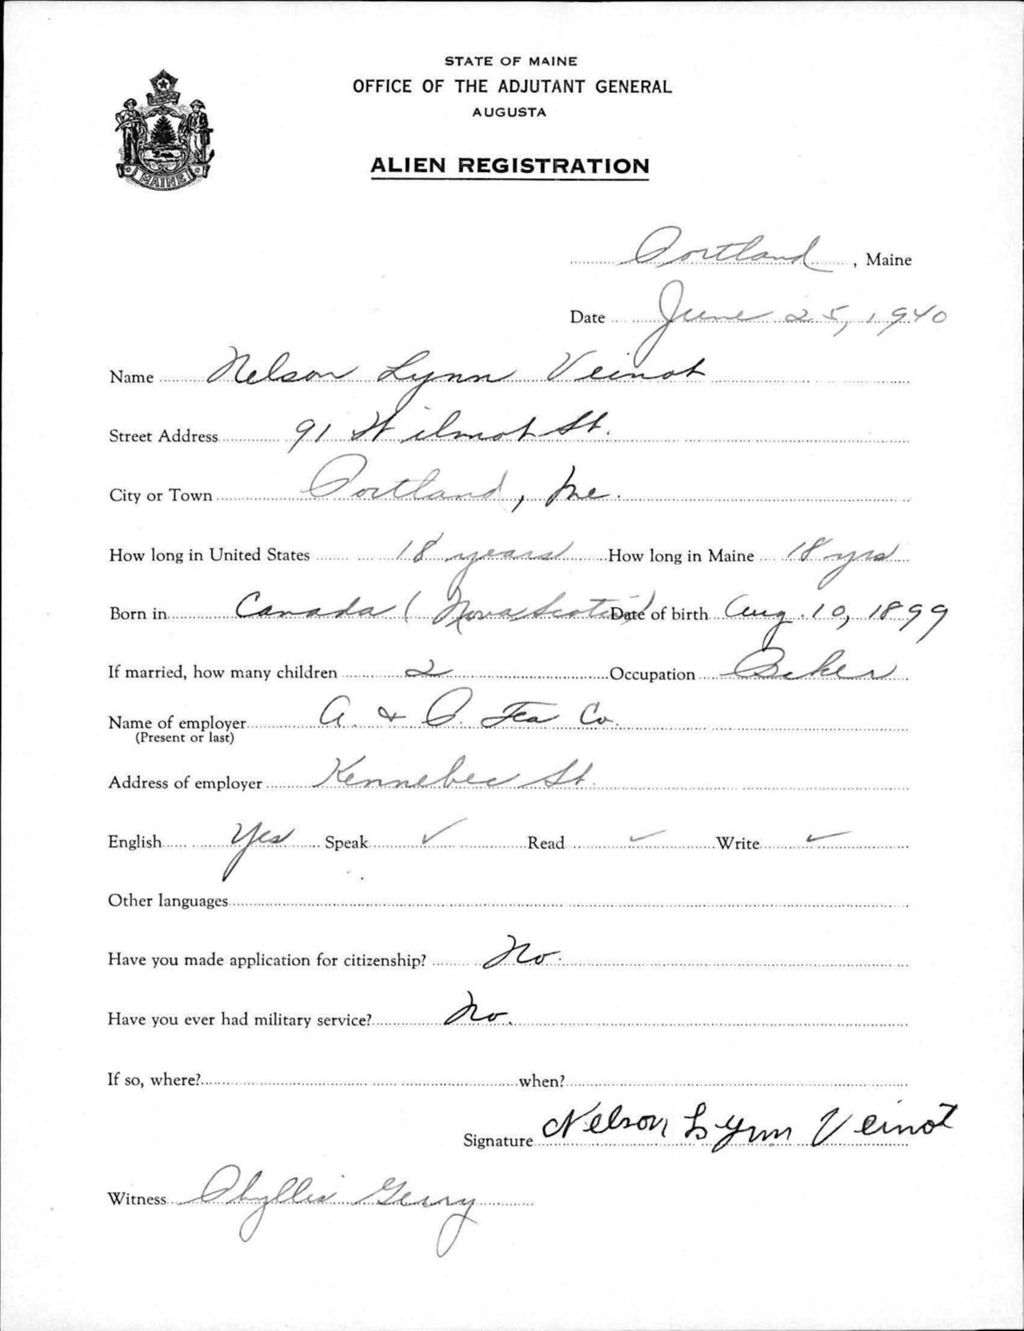 STATE OF MAINE
OFFICE OF THE ADJUTANT GENERAL
AUGUSTA
ALIEN REGISTRATION
MAINE
Portland, Maine
Date June 25, 1940
Name Nelson Lynn Veinot
Street Address 91 Wilmot St.
City or Town Portland, Me.
How long in United States 18 years How long in Maine 18 yrs
Born in Canada (Nova Scotia) Date of birth Aug. 10, 1899
If married, how many children 2 Occupation Baker
Name of employer A. & P. Tea Co.
(Present or last)
Address of employer Kennebec St.
English Yes Speak ✓ Read ✓ Write ✓
Other languages
Have you made application for citizenship? No.
Have you ever had military service? No.
If so, where? when?
Signature Nelson Lynn Veinot
Witness Phyllis Gerry